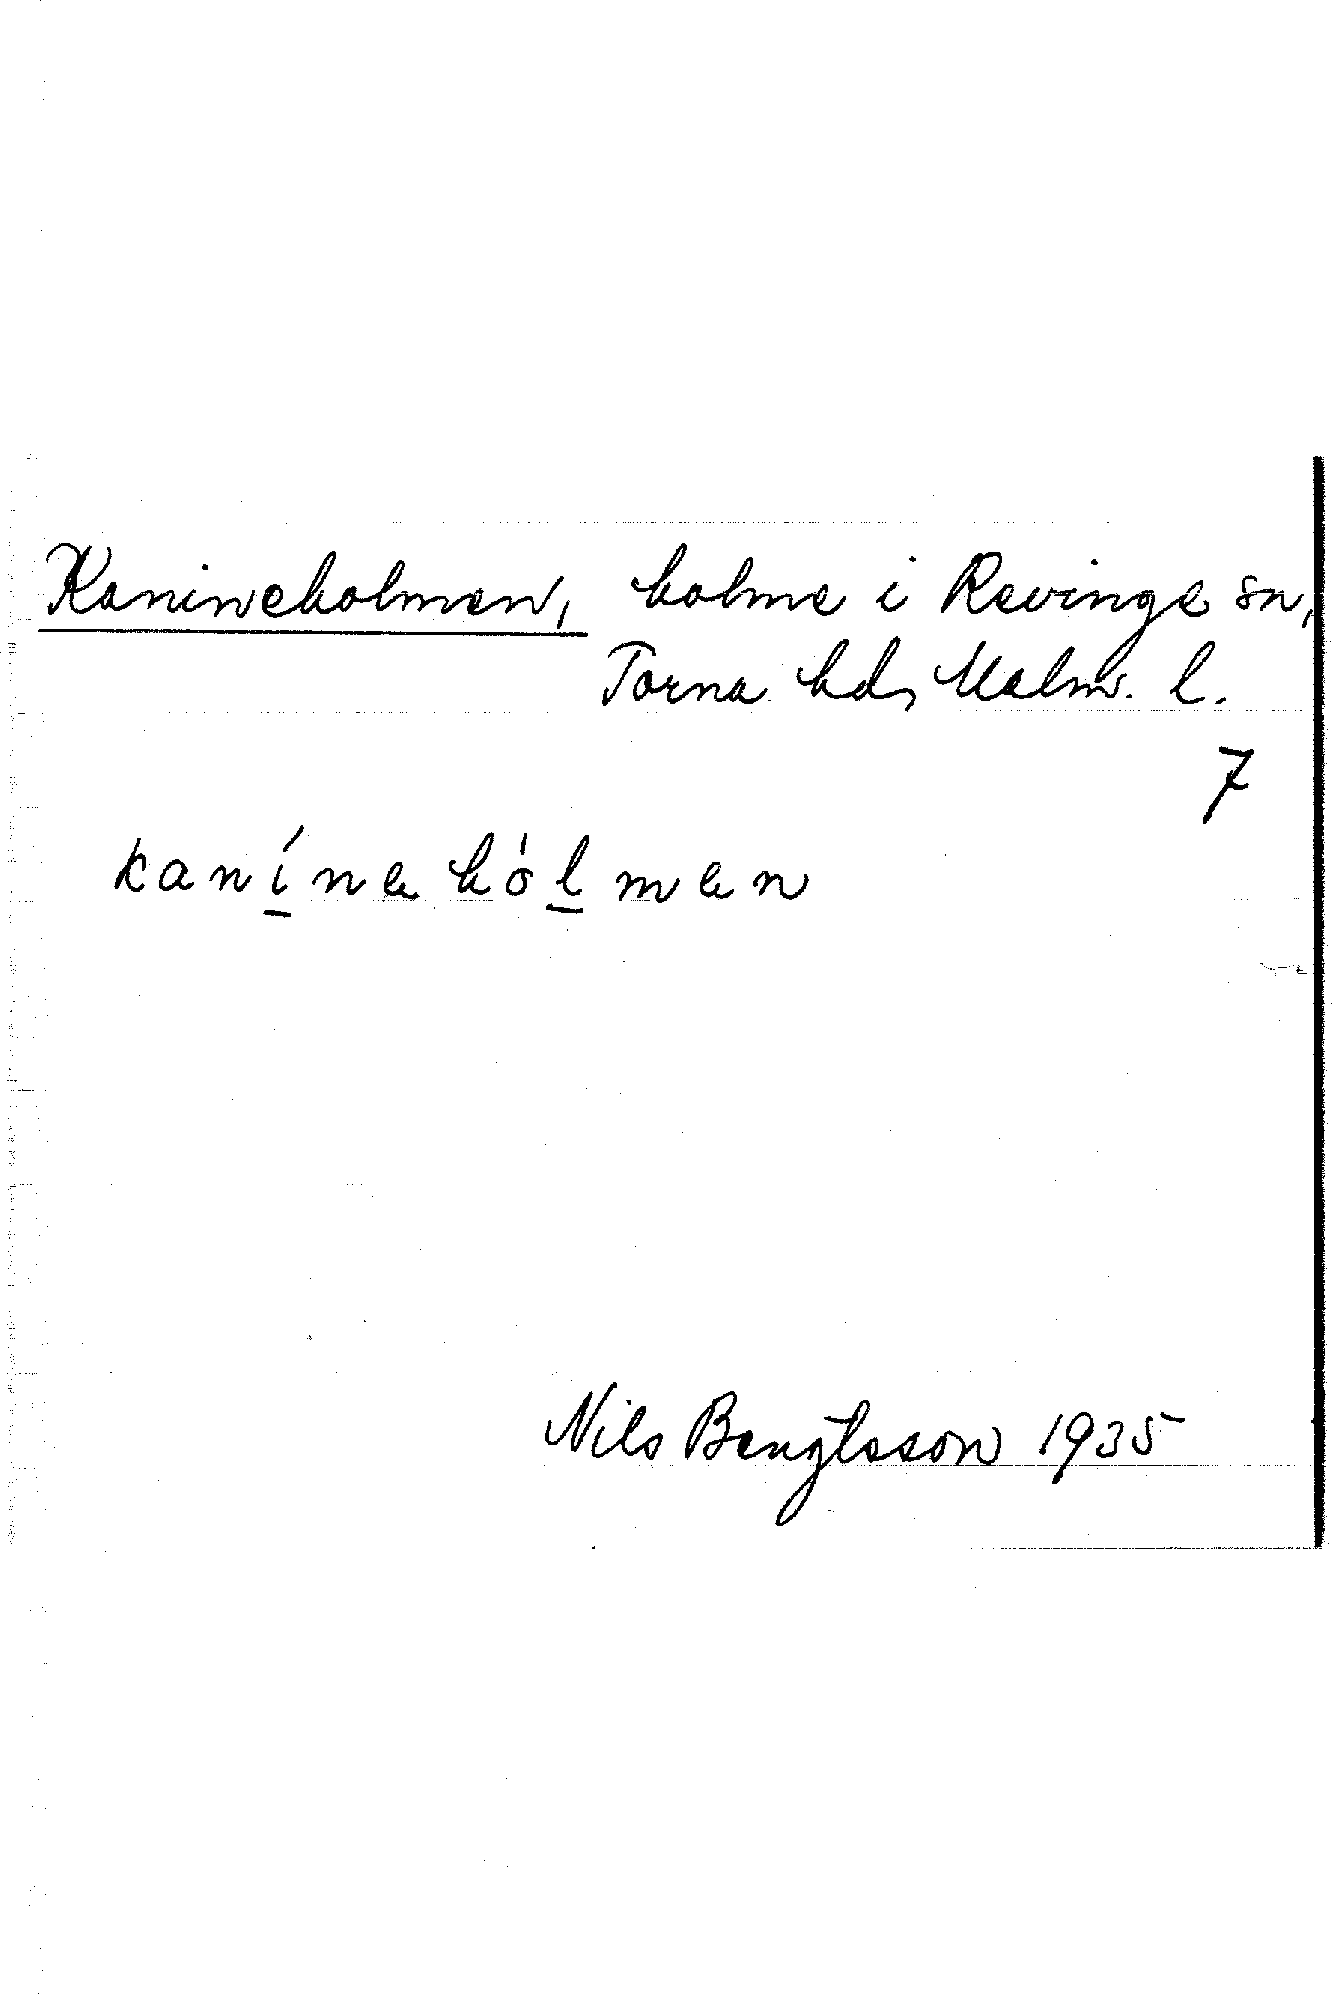 Kanineholmen, holme i Revinge sn,
Torna hd, Malm. l.
7
kanínahólman
Nils Bengtsson 1935